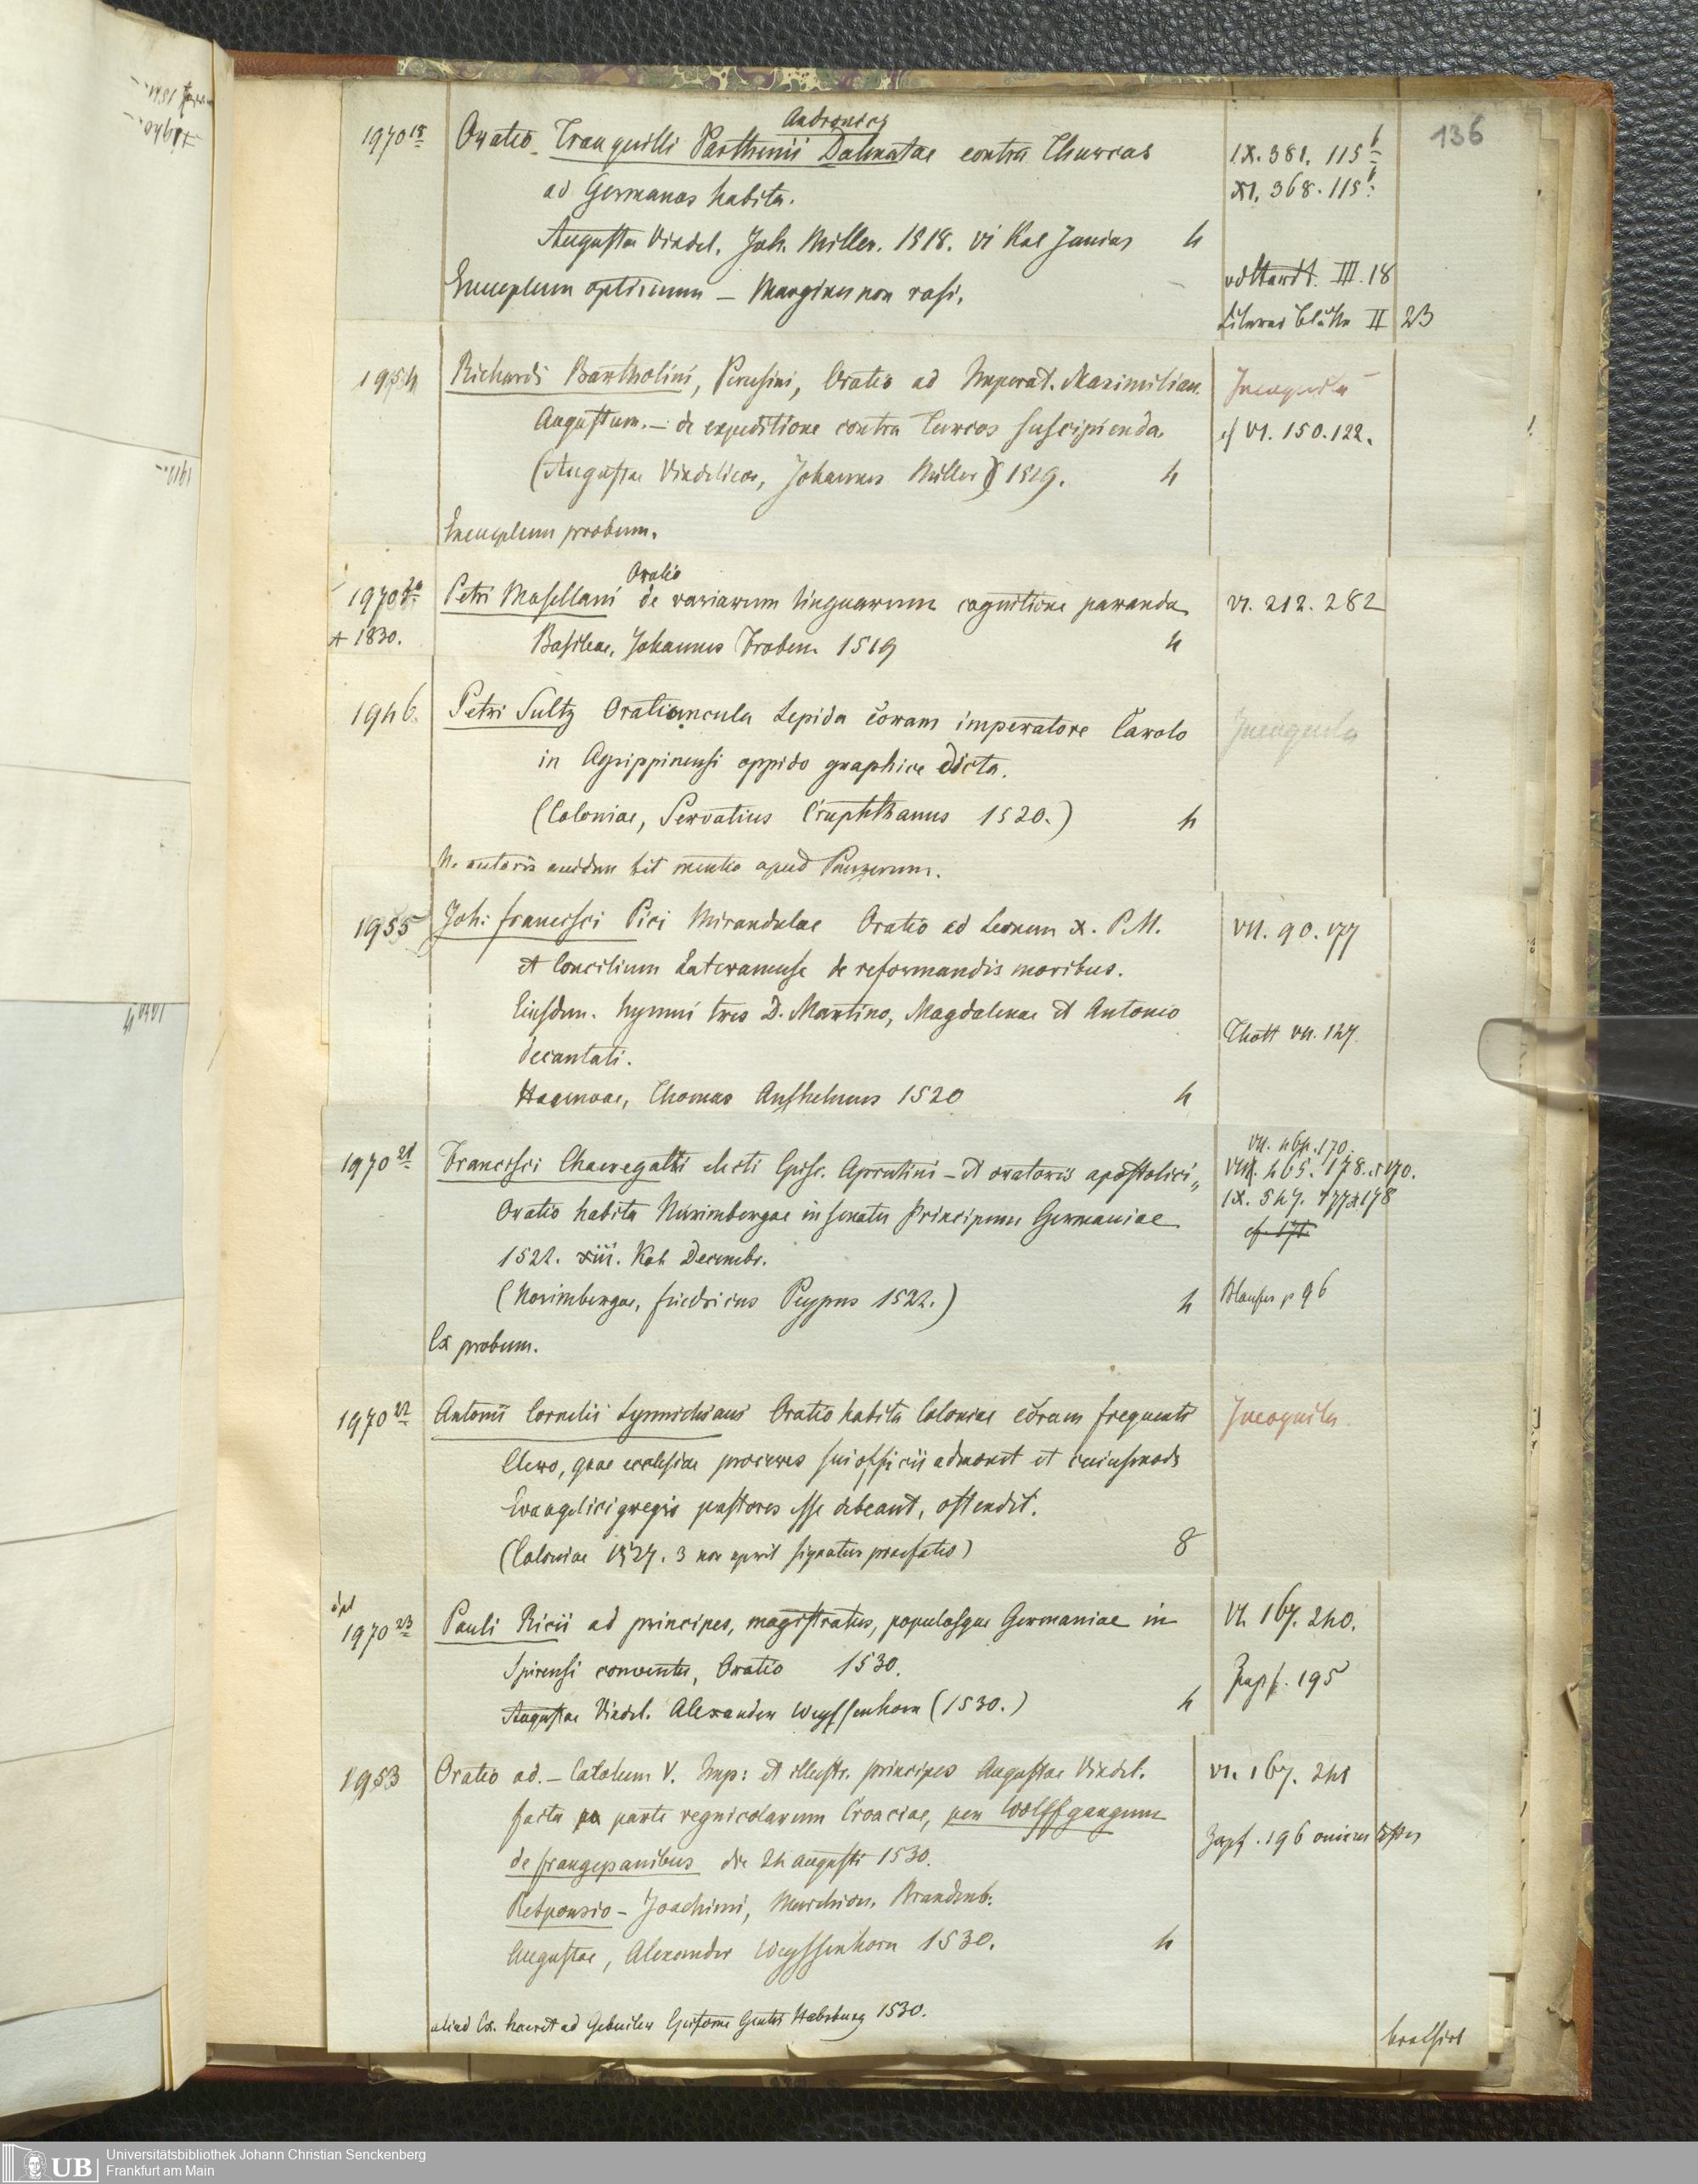 136
1970 18 Oratio Tranquilli Parthenii Andronici Dalmatae contra Thurcas
IX. 381. 115 b
ad Germanos habita.
XI. 368. 115 b.
Augustae Vindel. Joh. Miller. 1518. VI Kal Junias 4
Exemplum optimum — Margines non rasi.
vdHardt. III. 18
II 23
1954 Richardi Bartholini, Perusini, Oratio ad Imperat. Maximilian.
Incognita
Augustum. — de expeditione contra Turcos suscipienda.
cf VI. 150. 122.
(Augustae Vindelicor, Johannes Miller) 1519. 4
Exemplum probum.
1970 20 Petri Mosellani Oratio de variarum linguarum cognitione paranda
VI. 212. 282
+ 1830. Basileae, Johannes Froben. 1519 4
1946. Petri Sultz Oratiuncula Lepida coram imperatore Carolo
Incognita
in Agrippinensi oppido graphice dicta.
(Coloniae, Servatius Cruphtanus 1520.) 4
N. autoris quidem fit mentio apud Panzerum.
1955 Joh: francisci Pici Mirandulae Oratio ad Leonem X. P.M.
VII. 90. 177
et Concilium Lateranense de reformandis moribus.
Eiusdem. hymni tres D. Martino, Magdalenae et Antonio
Thott VII. 127.
decantati.
Hagenoae, Thomas Anshelmus 1520 4
1970 21 Francisci Chaeregatti electi Episc. Aprutini — et oratoris apostolici,,
VIII. 465. 178. 170.
Oratio habita Nurimbergae in senatu Principum Germaniae
IX. 547. 177 178
1522. XIII. Kal. Decembr.
(Norimbergae, fridricus Peypus 1522.) 4
p 96
Ex probum.
1970 22 Antonii Cornelii Lynnichiani Oratio habita Coloniae coram frequenti
Incognita
Clero, quae ecclesiae proceres sui officii admonet et cuiusmodi
Evangelici gregis pastores esse debeant, ostendit.
(Coloniae 1527. 3 signatur praefatio) 8
1970 23 Pauli Ricii ad principes, magistratus, populosque Germaniae in
VI. 167. 240.
Spirensi conventu, Oratio 1530.
Zapf. 195
Augustae Vindel. Alexander Weyssenhorn (1530.) 4
1953 Oratio ad. — Carolum V. Imp: et illustr. principes Augustae Vindel.
VI. 167. 241
facta parte regnicolarum Croaciae, per Wolffgangum
Zapf. 196
de frangepanibus die 24 augusti 1530.
Responsio — Joachimi, Marchion. Brandenb.
Augustae, Alexander Weyssenhorn 1530. 4
aliud Ex. haeret ad Gebwiler Epitome Gentis Habsburg 1530.
UB Universitätsbibliothek Johann Christian Senckenberg
Frankfurt am Main